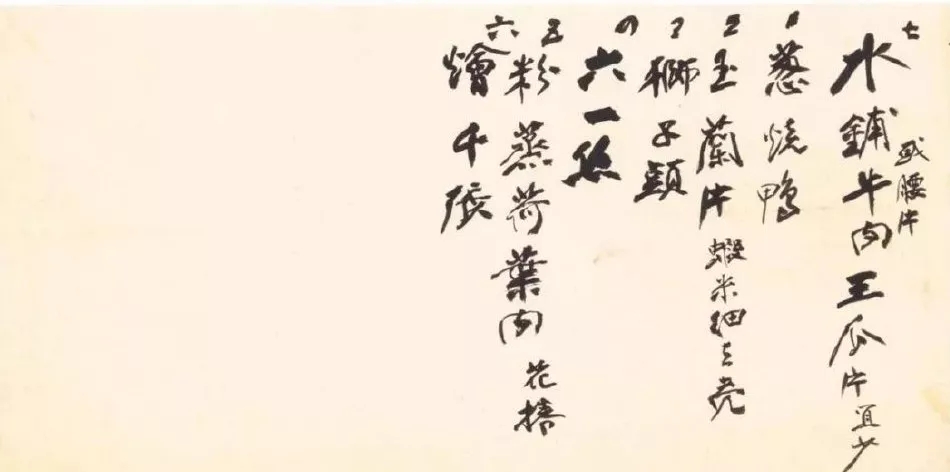 七 水鋪牛肉王瓜片宜少
或腰片
葱燒鴨
二 玉蘭片 蝦米細去殼
獅子頭
六一絲
五 粉蒸荷葉肉 花
六 燴千張